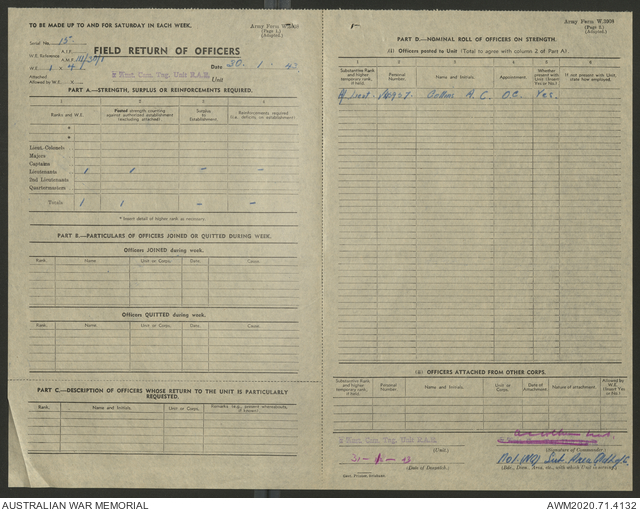 TO BE MADE UP TO AND FOR SATURDAY IN EACH WEEK.
Army Form W.3008
(Page 1.)
(Adapted.)
Serial No. 15
FIELD RETURN OF OFFICERS
W.E. Reference
A.F.P.
A.M.P.
W.E.
Date 30. 1. 43
Attached
Allowed by W.E.
Unit
PART A.—STRENGTH, SURPLUS OR REINFORCEMENTS REQUIRED.
1 2 3 4
Ranks and W.E.
Posted strength counting against authorized establishment (excluding attached)
Surplus to Establishment
Reinforcements required
Lieut. Colonels
Majors
Captains
Lieutenants 1 1 — —
2nd Lieutenants
Quartermasters
Totals 1 1 — —
* Insert detail of higher rank as necessary.
PART B.—PARTICULARS OF OFFICERS JOINED OR QUITTED DURING WEEK.
Officers JOINED during week.
Rank. Name. Unit or Corps. Date. Corps.
Officers QUITTED during week.
Rank. Name. Unit or Corps. Date. Corps.
PART C.—DESCRIPTION OF OFFICERS WHOSE RETURN TO THE UNIT IS PARTICULARLY REQUESTED.
Rank. Name and Initials. Unit or Corps.
Army Form W.3008
(Page 2.)
(Adapted.)
PART D.—NOMINAL ROLL OF OFFICERS ON STRENGTH.
(i) Officers posted to Unit (Total to agree with column 2 of Part A).
1 2 3 4 5 6
Substantive Rank and higher temporary rank, if held.
Personal Number.
Name and Initials.
Appointment.
Whether present with Unit (Insert Yes or No.)
If not present with Unit, state how employed.
Lieut. Collins A. C. O.C. Yes.
(ii) OFFICERS ATTACHED FROM OTHER CORPS.
Substantive Rank and higher temporary rank, if held.
Personal Number.
Name and Initials.
Unit or Corps.
Date of Attachment.
Nature of attachment.
Allowed by W.E. (Insert Yes or No.)
(Unit.)
(Signature of Commander)
(Date of Despatch.)
AUSTRALIAN WAR MEMORIAL
AWM2020.71.4132